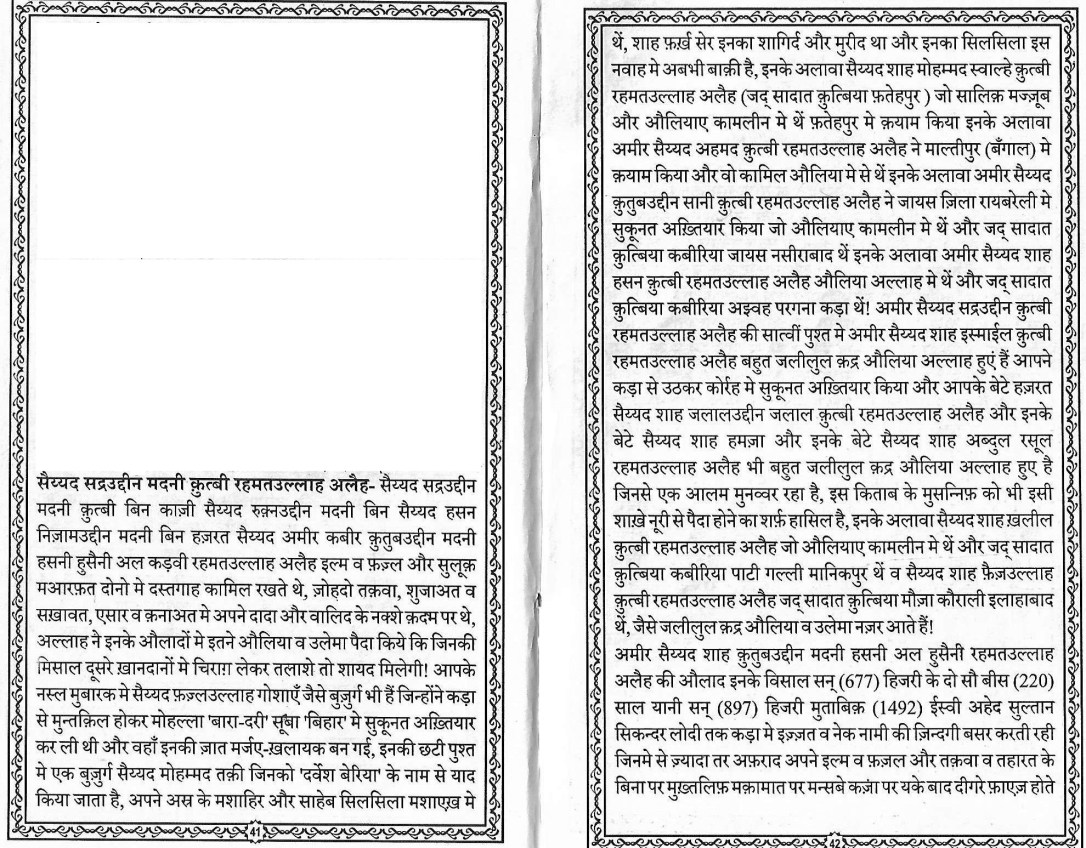 सैय्यद सद्रउद्दीन मदनी क़ुत्बी रहमतउल्लाह अलैह- सैय्यद सद्रउद्दीन
मदनी क़ुत्बी बिन काज़ी सैय्यद रुक़्नउद्दीन मदनी बिन सैय्यद हसन
निज़ामउद्दीन मदनी बिन हज़रत सैय्यद अमीर कबीर क़ुतुबउद्दीन मदनी
हसनी हुसैनी अल कड़वी रहमतउल्लाह अलैह इल्म व फ़ज़्ल और सुलूक़
मआरफ़त दोनो मे दस्तगाह कामिल रखते थे, ज़ोहदो तक़वा, शुजाअत व
सख़ावत, एसार व क़नाअत मे अपने दादा और वालिद के नक्शे क़दम पर थे,
अल्लाह ने इनके औलादों मे इतने औलिया व उलेमा पैदा किये कि जिनकी
मिसाल दूसरे ख़ानदानों मे चिराग़ लेकर तलाशे तो शायद मिलेगी! आपके
नस्ल मुबारक मे सैय्यद फ़ज़्लउल्लाह गोशाएँ जैसे बुज़ुर्ग भी हैं जिन्होंने कड़ा
से मुन्तक़िल होकर मोहल्ला 'बारा-दरी' सूबा 'बिहार' मे सुकूनत अख़्तियार
कर ली थी और वहाँ इनकी ज़ात मर्जए-ख़लायक बन गई, इनकी छटी पुश्त
मे एक बुज़ुर्ग सैय्यद मोहम्मद तक़ी जिनको 'दर्वेश बेरिया' के नाम से याद
किया जाता है, अपने अस्र के मशाहिर और साहेब सिलसिला मशाएख़ मे
41
थें, शाह फ़र्ख़ सेर इनका शागिर्द और मुरीद था और इनका सिलसिला इस
नवाह मे अबभी बाक़ी है, इनके अलावा सैय्यद शाह मोहम्मद स्वाल्हे क़ुत्बी
रहमतउल्लाह अलैह (जद् सादात क़ुत्बिया फ़तेहपुर ) जो सालिक़ मज्ज़ूब
और औलियाए कामलीन मे थें फ़तेहपुर मे क़याम किया इनके अलावा
अमीर सैय्यद अहमद क़ुत्बी रहमतउल्लाह अलैह ने माल्तीपुर (बँगाल) मे
क़याम किया और वो कामिल औलिया मे से थें इनके अलावा अमीर सैय्यद
क़ुतुबउद्दीन सानी क़ुत्बी रहमतउल्लाह अलैह ने जायस ज़िला रायबरेली मे
सुकूनत अख़्तियार किया जो औलियाए कामलीन मे थें और जद् सादात
क़ुत्बिया कबीरिया जायस नसीराबाद थें इनके अलावा अमीर सैय्यद शाह
हसन क़ुत्बी रहमतउल्लाह अलैह औलिया अल्लाह मे थें और जद् सादात
क़ुत्बिया कबीरिया अझ्वह परगना कड़ा थें! अमीर सैय्यद सद्रउद्दीन क़ुत्बी
रहमतउल्लाह अलैह की सात्वीं पुश्त मे अमीर सैय्यद शाह इस्माईल क़ुत्बी
रहमतउल्लाह अलैह बहुत जलीलुल क़द्र औलिया अल्लाह हुएं हैं आपने
कड़ा से उठकर कोर्रह मे सुकूनत अख़्तियार किया और आपके बेटे हज़रत
सैय्यद शाह जलालउद्दीन जलाल क़ुत्बी रहमतउल्लाह अलैह और इनके
बेटे सैय्यद शाह हमज़ा और इनके बेटे सैय्यद शाह अब्दुल रसूल
रहमतउल्लाह अलैह भी बहुत जलीलुल क़द्र औलिया अल्लाह हुए है
जिनसे एक आलम मुनव्वर रहा है, इस किताब के मुसन्निफ़ को भी इसी
शाख़े नूरी से पैदा होने का शर्फ़ हासिल है, इनके अलावा सैय्यद शाह ख़लील
क़ुत्बी रहमतउल्लाह अलैह जो औलियाए कामलीन मे थें और जद् सादात
क़ुत्बिया कबीरिया पाटी गल्ली मानिकपुर थें व सैय्यद शाह फ़ैज़उल्लाह
क़ुत्बी रहमतउल्लाह अलैह जद् सादात क़ुत्बिया मौज़ा कौराली इलाहाबाद
थें, जैसे जलीलुल क़द्र औलिया व उलेमा नज़र आते हैं!
अमीर सैय्यद शाह क़ुतुबउद्दीन मदनी हसनी अल हुसैनी रहमतउल्लाह
अलैह की औलाद इनके विसाल सन् (677) हिजरी के दो सौ बीस (220)
साल यानी सन् (897) हिजरी मुताबिक़ (1492) ईस्वी अहेद सुल्तान
सिकन्दर लोदी तक कड़ा मे इज़्ज़त व नेक नामी की ज़िन्दगी बसर करती रही
जिनमे से ज़्यादा तर अफ़राद अपने इल्म व फ़ज़ल और तक़वा व तहारत के
बिना पर मुख़्तलिफ़ मक़ामात पर मन्सबे कज़ां पर यके बाद दीगरे फ़ाएज़ होते
42